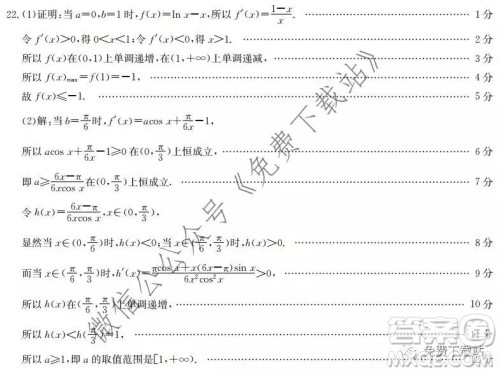 22.(1)证明:当a=0,b=1时,f(x)=ln x-x,所以f′(x)=\frac{1-x}{x}. 1分
令f′(x)>0,得0<x<1;令f′(x)<0,得x>1. 2分
所以f(x)在(0,1)上单调递增,在(1,+∞)上单调递减, 3分
所以f(x)_{max}=f(1)=-1, 4分
故f(x)≤-1. 5分
(2)解:当b=\frac{π}{6}时,f′(x)=acos x+\frac{π}{6x}-1,
所以acos x+\frac{π}{6x}-1≥0在(0,\frac{π}{3})上恒成立, 6分
即a≥\frac{6x-π}{6xcos x}在(0,\frac{π}{3})上恒成立. 7分
令h(x)=\frac{6x-π}{6xcos x},x∈(0,\frac{π}{3}),
显然当x∈(0,\frac{π}{6})时,h(x)<0;当x∈(\frac{π}{6},\frac{π}{3})时,h(x)>0. 8分
而当x∈(\frac{π}{6},\frac{π}{3})时,h′(x)=\frac{πcos x+x(6x-π)sin x}{6x²cos²x}>0, 9分
所以h(x)在(\frac{π}{6},\frac{π}{3})上单调递增, 10分
所以h(x)<h(\frac{π}{3})=1,
所以a≥1,即a的取值范围是[1,+∞).
微信公众号《免费下载站》
答案圈
免费下载站